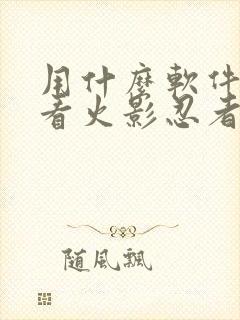 用什麽軟件
看火影忍者
隨風飄